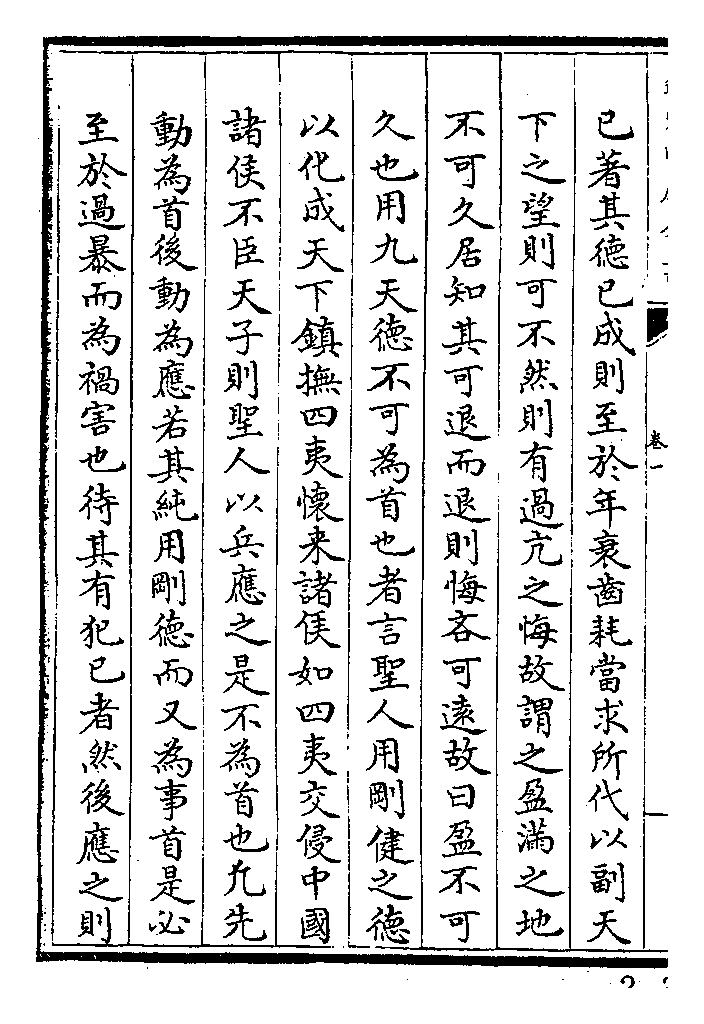 已著其德已成則至於年衰齒耗當求所代以副天
下之望則可不然則有過亢之悔故謂之盈滿之地
不可久居知其可退而退則悔吝可逺故曰盈不可
久也用九天德不可為首也者言聖人用剛健之德
以化成天下鎮撫四夷懷来諸侯如四夷交侵中國
諸侯不臣天子則聖人以兵應之是不為首也凢先
動為首後動為應若其純用剛德而又為事首是必
至於過暴而為禍害也待其有犯已者然後應之則
卷一